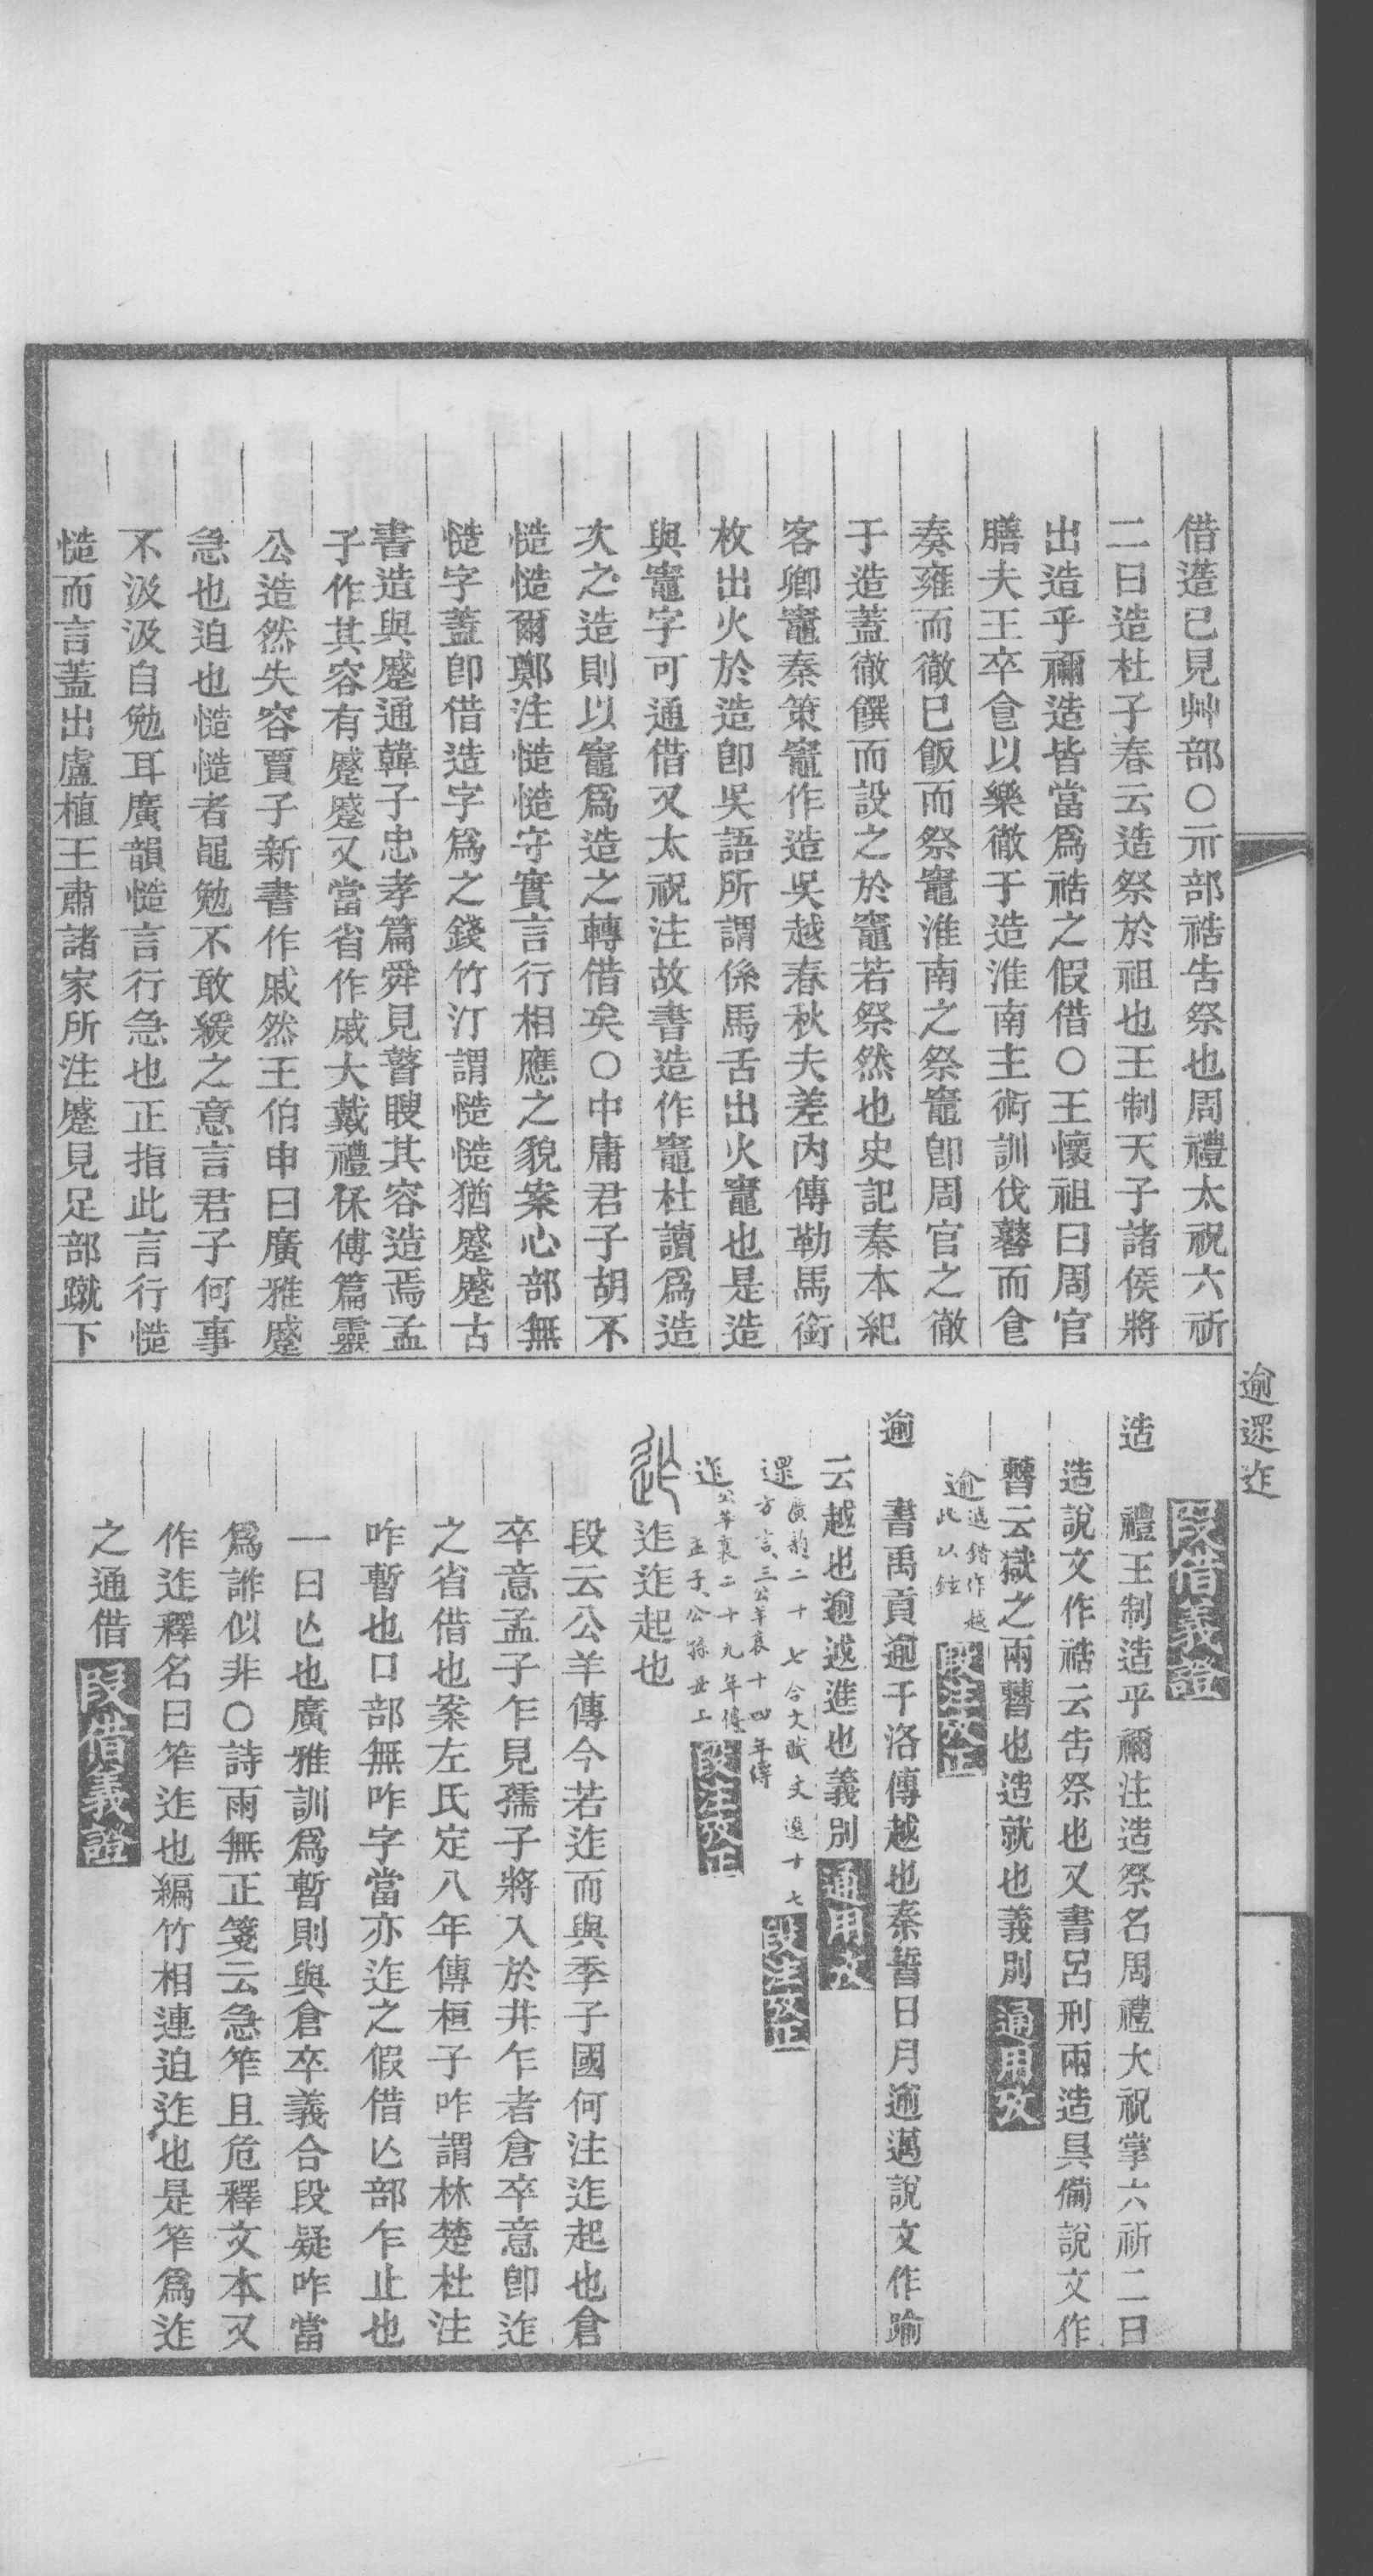 借蓙已見艸部○示部祰告祭也周禮太祝六祈
二曰造杜子春云造祭於祖也王制天子諸侯將
出造乎禰造皆當爲祰之假借○王懷祖曰周官
膳夫王卒食以樂徹于造淮南主術訓伐鼛而食
奏雍而徹已飯而祭竈淮南之祭竈卽周官之徹
于造蓋徹饌而設之於竈若祭然也史記秦本紀
客卿竈秦策竈作造吳越春秋夫差內傳勒馬銜
枚出火於造卽吳語所謂係馬舌出火竈也是造
與竈字可通借又太祝注故書造作竈杜讀爲造
次之造則以竈爲造之轉借矣○中庸君子胡不
慥慥爾鄭注慥慥守實言行相應之貌案心部無
慥字蓋卽借造字爲之錢竹汀謂慥慥猶蹙蹙古
書造與蹙通韓子忠孝篇舜見瞽瞍其容造焉孟
子作其容有蹙蹙又當省作戚大戴禮保傅篇靈
公造然失容賈子新書作戚然王伯申曰廣雅蹙
急也迫也慥慥者黽勉不敢緩之意言君子何事
不汲汲自勉耳廣韻慥言行急也正指此言行慥
慥而言蓋出盧植王肅諸家所注蹙見足部蹴下
逾遝迮
段借義證
造 禮王制造乎禰注造祭名周禮大祝掌六祈二曰
造說文作祰云告祭也又書呂刑兩造具備說文作
㯥云獄之兩㯥也造就也義別 通用攷
逾 逑鍇作越
此以鉉 段注攷正
逾 書禹貢逾于洛傳越也秦誓日月逾邁說文作踰
云越也逾逑進也義別 通用攷
遝 廣韵二十七合文賦文選十七
方言三公羊哀十四年傳 段注攷正
迮 公羊襄二十九年傳
孟子公孫丑上 段注攷正
迮迮起也
段云公羊傳今若迮而與季子國何注迮起也倉
卒意孟子乍見孺子將入於井乍者倉卒意卽迮
之省借也案左氏定八年傳桓子咋謂林楚杜注
咋暫也口部無咋字當亦迮之假借亾部乍止也
一曰亾也廣雅訓爲暫則與倉卒義合段疑咋當
爲詐似非○詩雨無正箋云急笮且危釋文本又
作迮釋名曰笮迮也編竹相連迫迮也是笮爲迮
之通借 段借義證